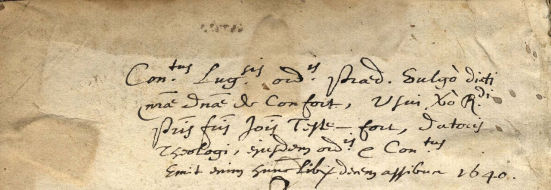 Con.tus Lug.sis ord.is Præd. Vulgò dicti
nræ dnæ de Confort, Usui v̄o R.di
Pris fris Jois Teste-fort, datoris
Theologi, eiusdem ord.is & Con.tus
Emit enim hunc libr̄ decem assibus 1640.